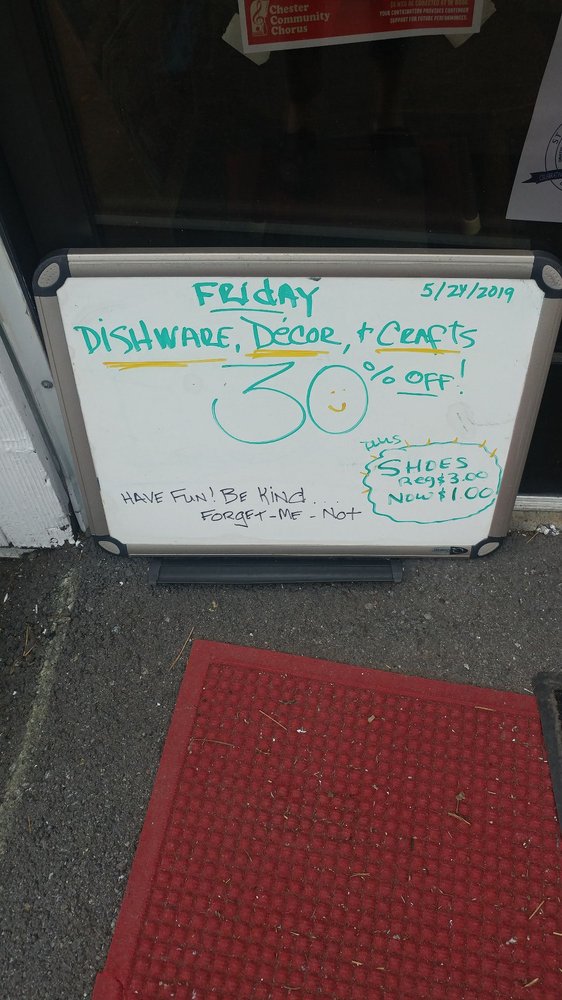 Chester
Community
Chorus
SUPPORT FOR FUTURE PERFORMANCES.
FRIDAY
5/24/2019
DISHWARE, DÉCOR, + CRAFTS
30% OFF!
PLUS
SHOES
Reg $3.00
NOW $1.00
HAVE FUN! BE KIND...
FORGET-ME-NOT